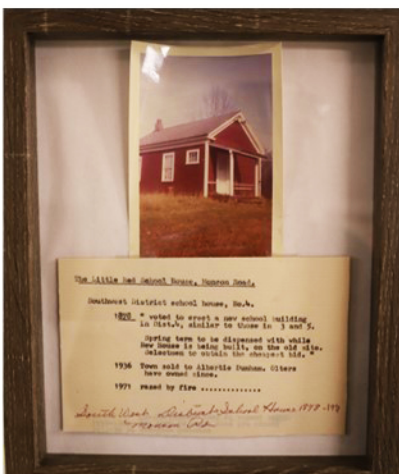 The Little Red School House, Monson Road.
Southwest District school house, No.4.
1878 " voted to erect a new school building
in Dist.4, similar to those in 3 and 5.
Spring term to be dispensed with while
New House is being built, on the old site.
Selectmen to obtain the cheapest bid. "
1936 Town sold to Albertie Dunham. Others
have owned since.
1971 razed by fire ..............
South West District School House 1878-
Monson